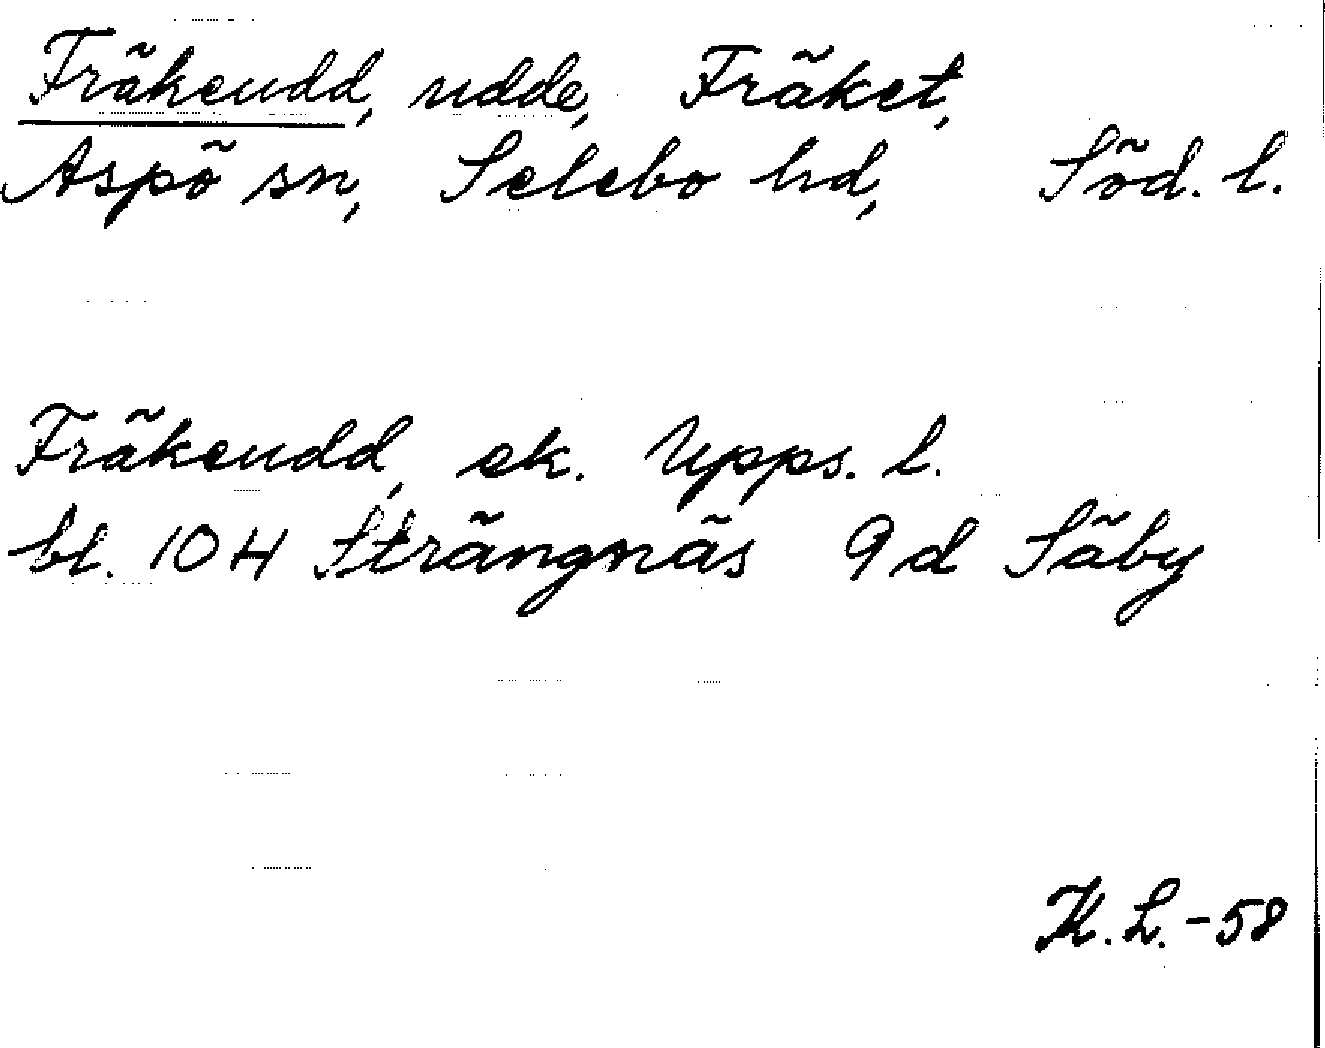 Fräkeudd, udde, Fräket,
Aspö sn, Selebo hd, Söd. l.
Fräkeudd, ek. Upps. l.
bl. 10 H Strängnäs 9 d Säby
K.L.-58